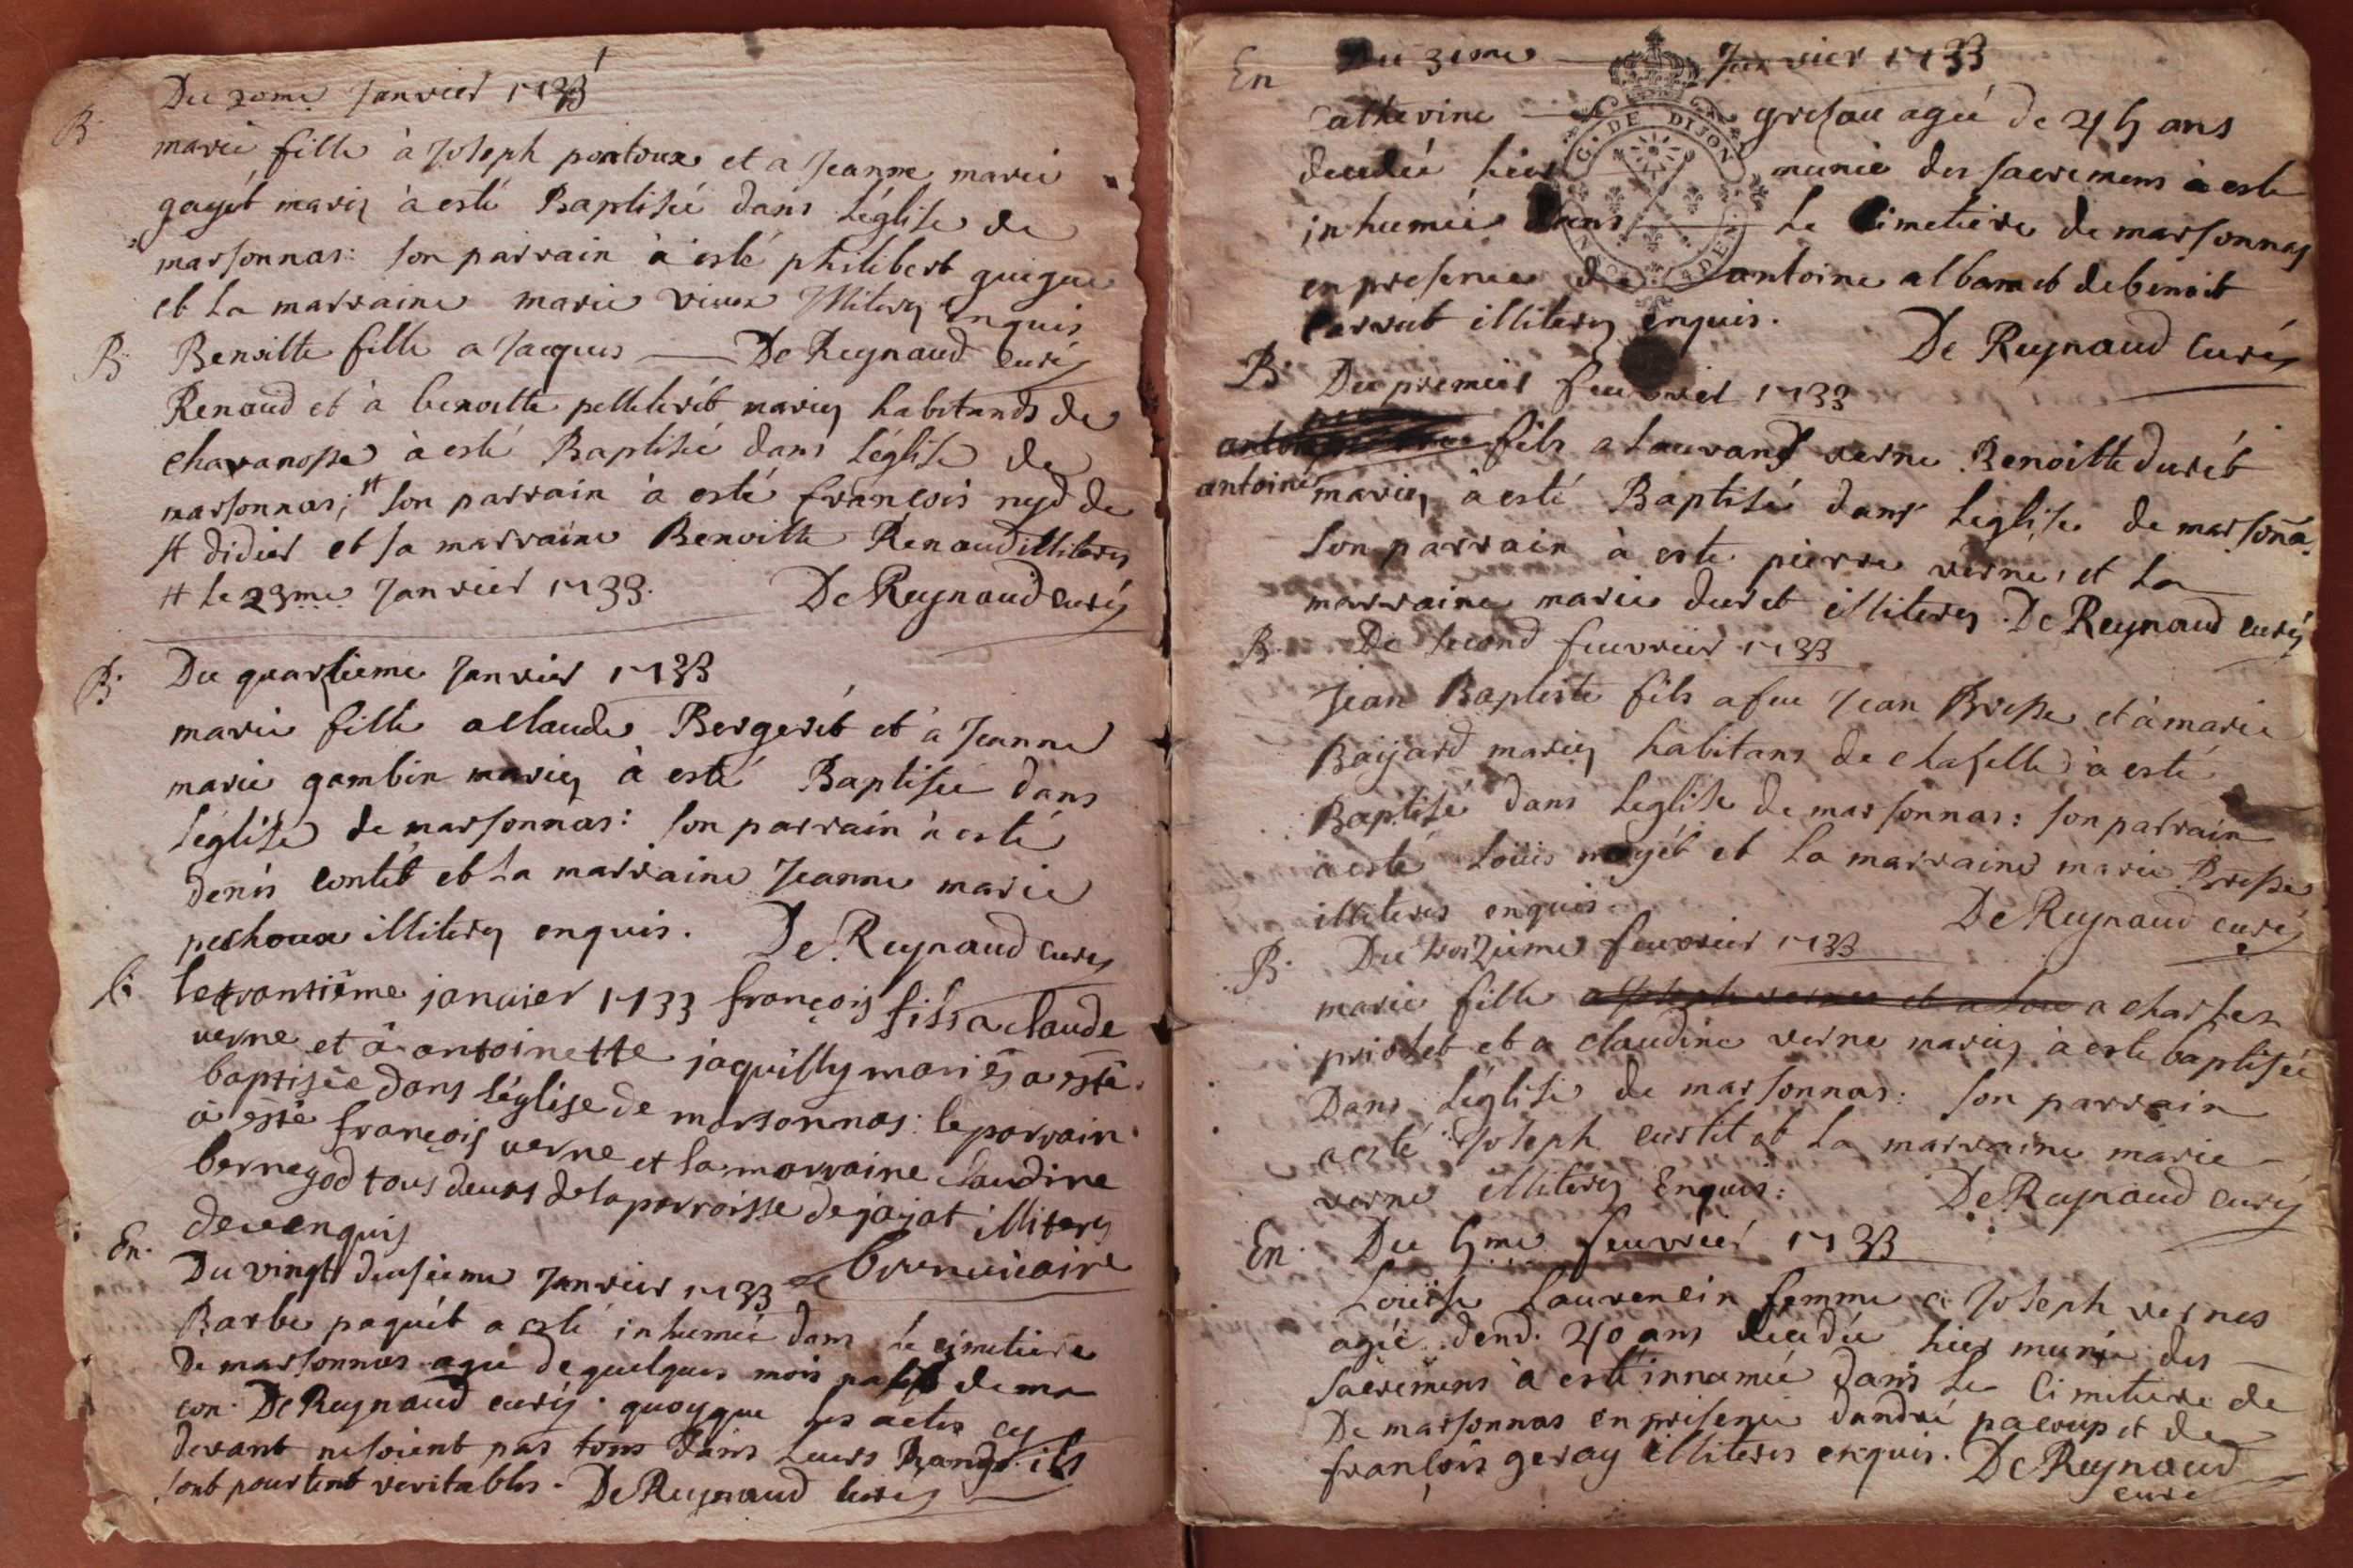 B. Du 20me Janvier 1733
marie fille à Joseph pontoux et a Jeanne marie
gayét mariés à esté Baptisée dans Léglise de
marsonnas: son parrain à esté philibert guigue
et La marraine marie vieux illiterés enquis
B Benoitte fille a Jacques — De Reynaud Curé
Renaud et à benoitte pelleterét mariés habitands de
chavanosse à esté Baptisée dans Léglise de
marsonnas; # son parrain à esté francois nyd de
st didier et sa marraine Benoitte Renaud illiterés
# Le 23me Janvier 1733. De Reynaud curé
B. Du quartieme Janvier 1733
marie fille a Claude Bergerét et à Jeanne
marie gambin mariés à esté Baptisée dans
Léglise de marsonnas: son parrain à esté
denis contét et La marraine Jeanne marie
pechoux illiterés enquis. De Reynaud curé
B. Le trantiême januier 1733 françois fils a claude
verne et â antoinette jaquilly mariés a esté
baptisée dans l'église de marsonnas: le parrain
à esté françois verne et la marraine claudine
bernegod tous deux de la parroisse de jajat illiterés
de ce enquis
En. Du vingt deusieme Janvier 1733 vicaire
Barbe paquét a esté inhumée dans le cimetiere
De marsonnas agée de quelques mois de ma
con. De Reynaud curé. quoyque les actes cy
devant ne soient pas tous dans Leurs Rangs ils
sont pourtent veritables. De Reynaud Curé
En Du 3eme — Janvier 1733
Catherine — G. DE DIJON gresou agée de 45 ans
decedée hier munie des sacremens à esté
inhumée dans — Le Cimetiere de marsonnas
en presence de antoine albam et de benoit
Carrat illiterés enquis.
De Reynaud Curé
B. Du premier feuvrier 1733
fils a Lauvand verne Benoitte durét
antoine mariés à esté Baptisé dans Leglise de marsona.
Son parrain à esté pierre verne, et La
marraine marie duret illiterés. De Reynaud curé
B. De second feuvrier 1733
Jean Baptiste fils a feu Jean Bresse et à marie
Bayard mariés habitans de chaselle à esté
Baptisé dans Leglise de marsonnas: son parrain
à esté Loüis et La marraine marie Bresse
illiterés enquis. De Reynaud curé
B. Du troizieme feuvrier 1733
marie fille a Joseph vernes et a Lou a charles
priolet et a claudine verne mariés à esté baptisée
Dans Léglise de marsonnas: son parrain
a esté Joseph curtit et La marraine marie
verne illiterés Enquis: De Reynaud curé
En. Du 5me feuvrier 1733
Loüise Lauvencin femme a Joseph vernes
agée dend. 40 ans decedée hier munie des
Sacremens à esté innumée dans Le Cimetiere de
De marsonnas en presence dandré pacoup et de
françois geray illiterés enquis. De Reynaud
curé